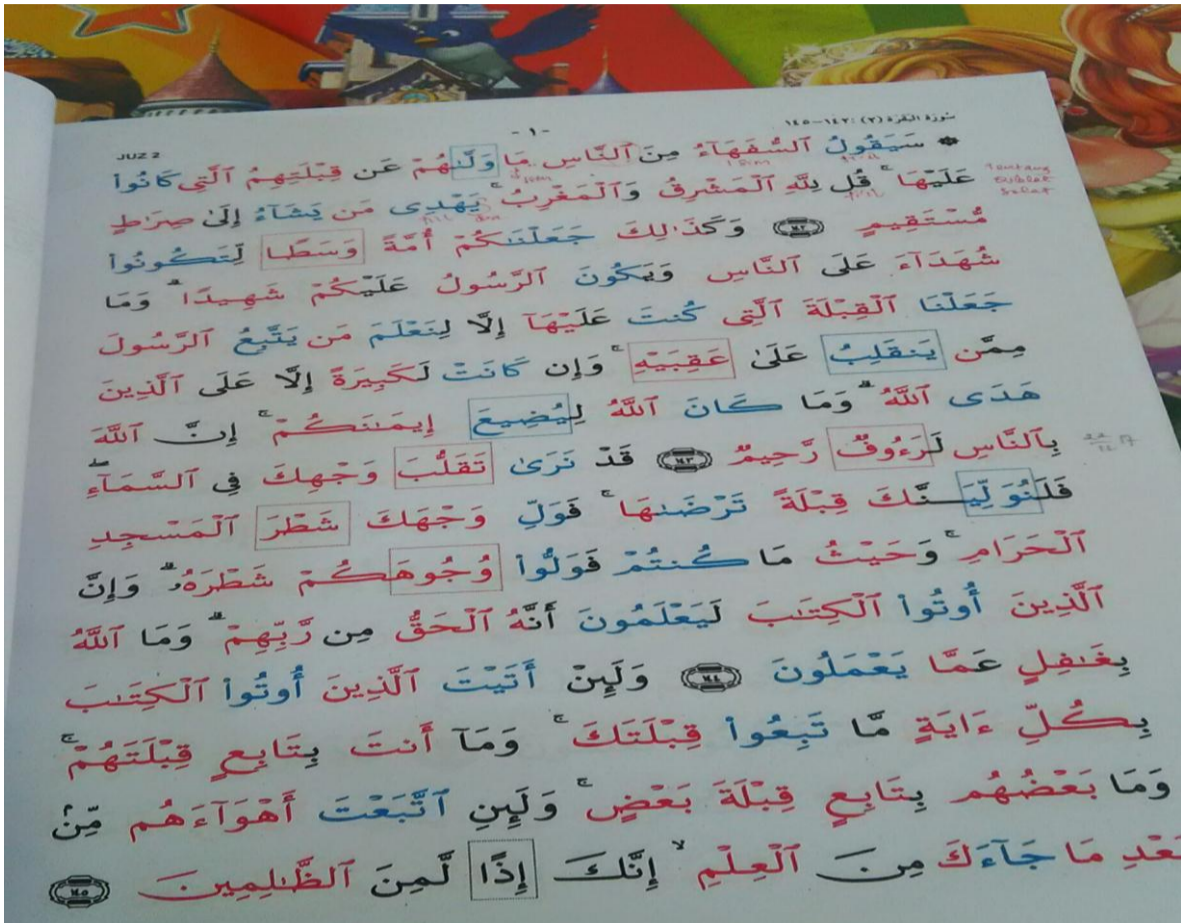 JUZ 2
- ١ -
سُورَةُ الْبَقَرَة (٢) : ١٤٢-١٤٥
سَيَقُولُ ٱلسُّفَهَآءُ مِنَ ٱلنَّاسِ مَا وَلَّىٰهُمْ عَن قِبْلَتِهِمُ ٱلَّتِى كَانُوا۟
عَلَيْهَا ۚ قُل لِّلَّهِ ٱلْمَشْرِقُ وَٱلْمَغْرِبُ ۚ يَهْدِى مَن يَشَآءُ إِلَىٰ صِرَٰطٍ
tentang
qiblat
salat
مُّسْتَقِيمٍ ١٤٢ وَكَذَٰلِكَ جَعَلْنَٰكُمْ أُمَّةً وَسَطًا لِّتَكُونُوا۟
شُهَدَآءَ عَلَى ٱلنَّاسِ وَيَكُونَ ٱلرَّسُولُ عَلَيْكُمْ شَهِيدًا ۗ وَمَا
جَعَلْنَا ٱلْقِبْلَةَ ٱلَّتِى كُنتَ عَلَيْهَآ إِلَّا لِنَعْلَمَ مَن يَتَّبِعُ ٱلرَّسُولَ
مِمَّن يَنقَلِبُ عَلَىٰ عَقِبَيْهِ ۚ وَإِن كَانَتْ لَكَبِيرَةً إِلَّا عَلَى ٱلَّذِينَ
هَدَى ٱللَّهُ ۗ وَمَا كَانَ ٱللَّهُ لِيُضِيعَ إِيمَٰنَكُمْ ۚ إِنَّ ٱللَّهَ
بِٱلنَّاسِ لَرَءُوفٌ رَّحِيمٌ ١٤٣ قَدْ نَرَىٰ تَقَلُّبَ وَجْهِكَ فِى ٱلسَّمَآءِ ۖ
فَلَنُوَلِّيَنَّكَ قِبْلَةً تَرْضَىٰهَا ۚ فَوَلِّ وَجْهَكَ شَطْرَ ٱلْمَسْجِدِ
ٱلْحَرَامِ ۚ وَحَيْثُ مَا كُنتُمْ فَوَلُّوا۟ وُجُوهَكُمْ شَطْرَهُۥ ۗ وَإِنَّ
ٱلَّذِينَ أُوتُوا۟ ٱلْكِتَٰبَ لَيَعْلَمُونَ أَنَّهُ ٱلْحَقُّ مِن رَّبِّهِمْ ۗ وَمَا ٱللَّهُ
بِغَٰفِلٍ عَمَّا يَعْمَلُونَ ١٤٤ وَلَئِنْ أَتَيْتَ ٱلَّذِينَ أُوتُوا۟ ٱلْكِتَٰبَ
بِكُلِّ ءَايَةٍ مَّا تَبِعُوا۟ قِبْلَتَكَ ۚ وَمَآ أَنتَ بِتَابِعٍ قِبْلَتَهُمْ ۚ
وَمَا بَعْضُهُم بِتَابِعٍ قِبْلَةَ بَعْضٍ ۚ وَلَئِنِ ٱتَّبَعْتَ أَهْوَآءَهُم مِّنۢ
بَعْدِ مَا جَآءَكَ مِنَ ٱلْعِلْمِ ۙ إِنَّكَ إِذًا لَّمِنَ ٱلظَّٰلِمِينَ ١٤٥